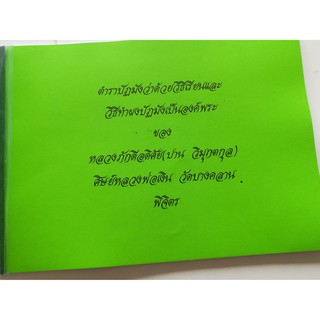 ตำราปัฏมังว่าด้วยวิธีเรียนและ
วิธีทำผงปัฏมังเป็นองค์พระ
ของ
หลวงภักดีอดิศัย(ปาน วิมุกตกุล)
ศิษย์หลวงพ่อเงิน วัดบางคลาน
พิจิตร